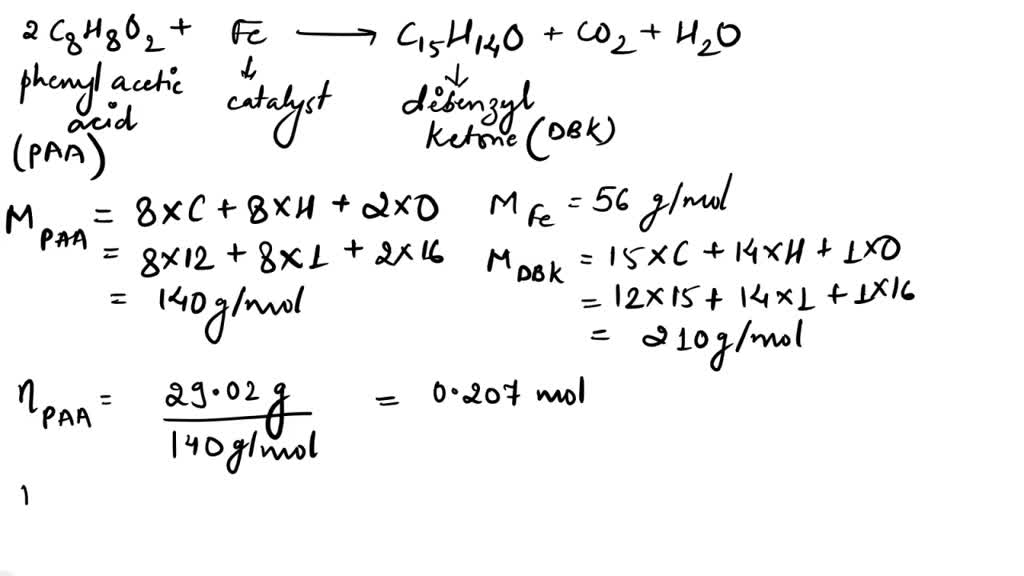 2 C8H8O2 + Fe ⟶ C15H14O + CO2 + H2O
phenyl acetic acid (PAA)
↓ catalyst
↓ dibenzyl ketone (DBK)
M PAA = 8×C + 8×H + 2×O
= 8×12 + 8×1 + 2×16
= 140 g/mol
M Fe = 56 g/mol
M DBK = 15×C + 14×H + 1×O
= 12×15 + 14×1 + 1×16
= 210 g/mol
η PAA = 29.02 g / 140 g/mol = 0.207 mol